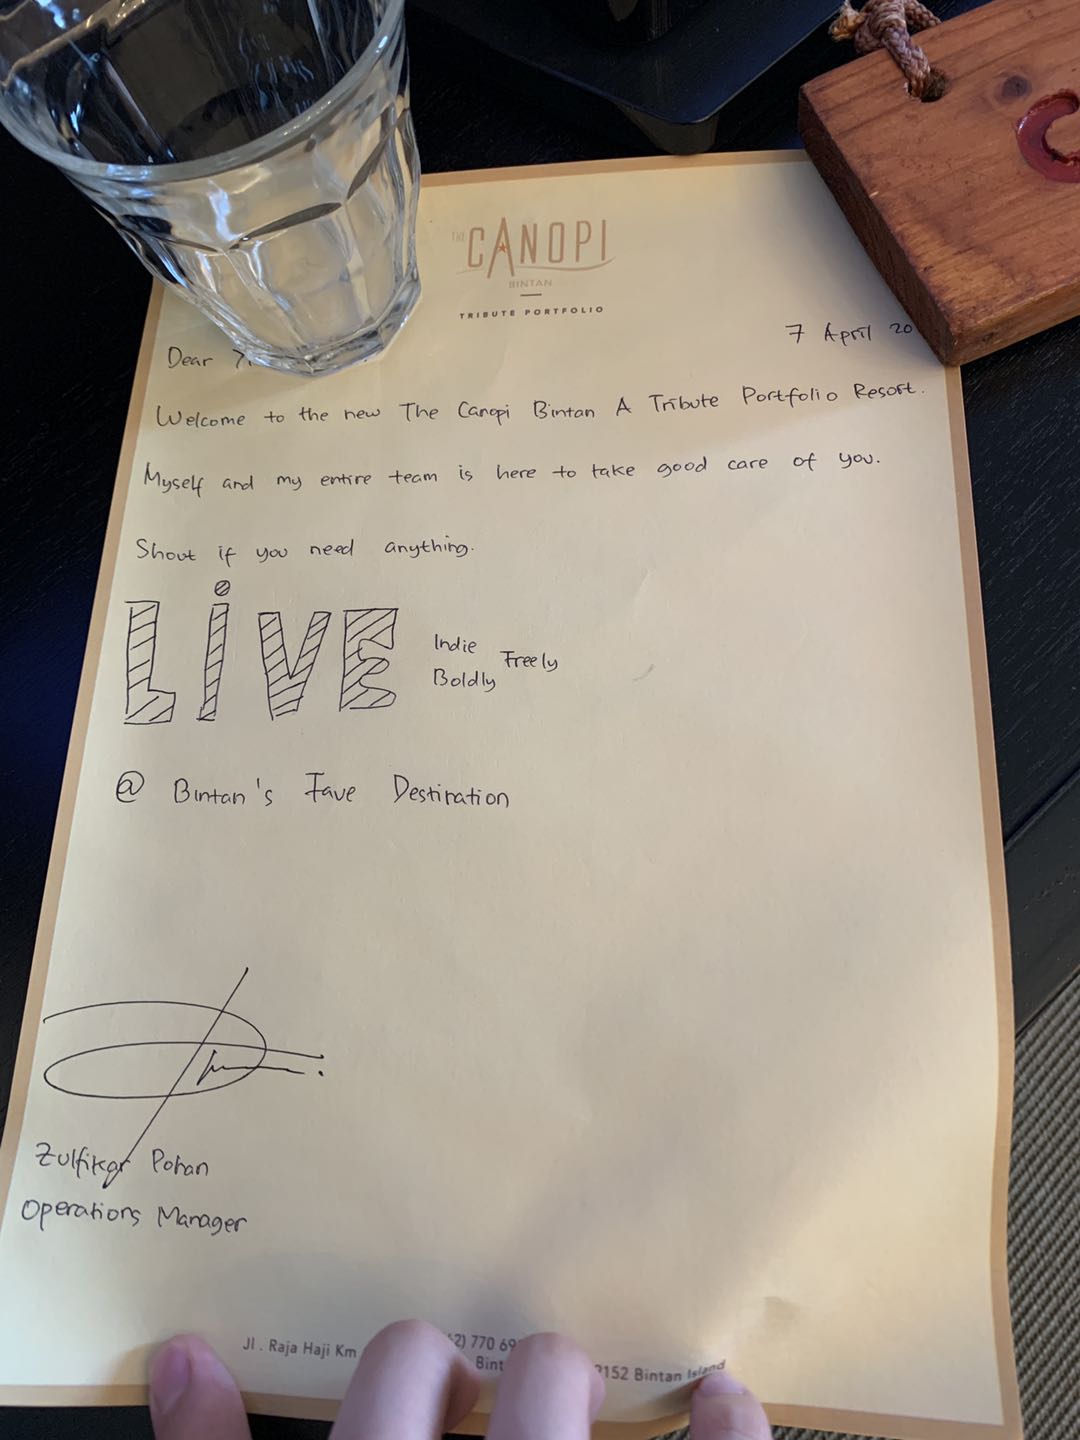 THE CANOPI
BINTAN
TRIBUTE PORTFOLIO
7 April 20
Dear
Welcome to the new The Canopi Bintan A Tribute Portfolio Resort.
Myself and my entire team is here to take good care of you.
Shout if you need anything.
LiVE Indie Boldly Freely
@ Bintan's Fave Destination
Zulfikar Pohan
Operations Manager
Jl. Raja Haji Km 62) 770 69
Bint 9152 Bintan Island